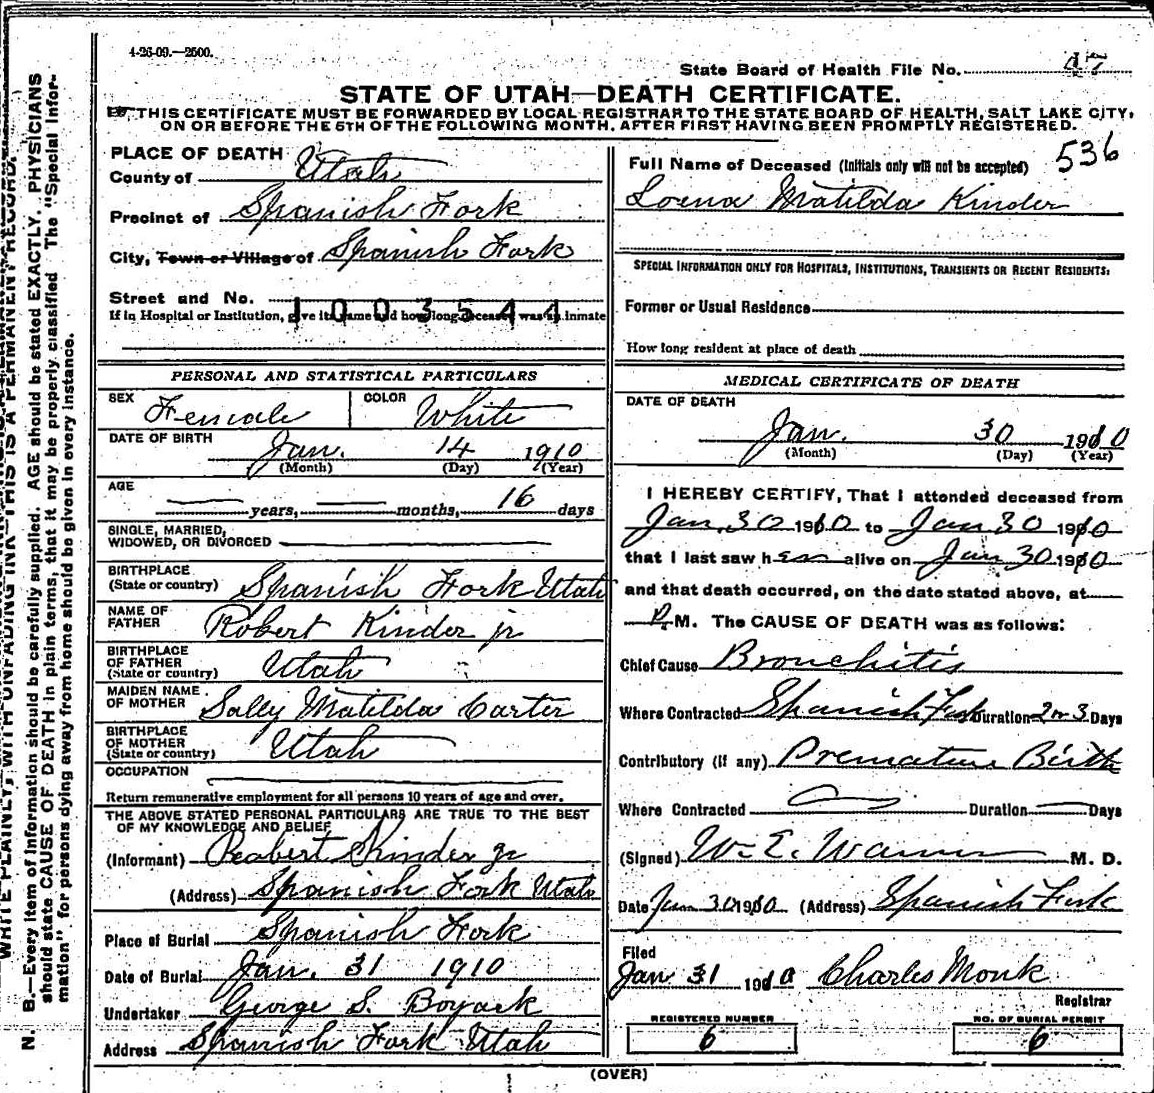 4-26-09.—2500.
State Board of Health File No. 47
STATE OF UTAH—DEATH CERTIFICATE.
THIS CERTIFICATE MUST BE FORWARDED BY LOCAL REGISTRAR TO THE STATE BOARD OF HEALTH, SALT LAKE CITY,
ON OR BEFORE THE 5TH OF THE FOLLOWING MONTH, AFTER FIRST HAVING BEEN PROMPTLY REGISTERED.
536
PLACE OF DEATH
County of Utah
Precinct of Spanish Fork
City, Town or Village of Spanish Fork
Street and No.
1003544
If in Hospital or Institution, give its name and how long deceased was an inmate
Full Name of Deceased (Initials only will not be accepted)
Lorena Matilda Kinder
SPECIAL INFORMATION ONLY FOR HOSPITALS, INSTITUTIONS, TRANSIENTS OR RECENT RESIDENTS:
Former or Usual Residence
How long resident at place of death
PERSONAL AND STATISTICAL PARTICULARS
SEX Female COLOR White
DATE OF BIRTH Jan. 14 1910
(Month) (Day) (Year)
AGE
years, months, 16 days
SINGLE, MARRIED,
WIDOWED, OR DIVORCED
BIRTHPLACE
(State or country) Spanish Fork Utah
NAME OF
FATHER Robert Kinder jr
BIRTHPLACE
OF FATHER
(State or country) Utah
MAIDEN NAME
OF MOTHER Sally Matilda Carter
BIRTHPLACE
OF MOTHER
(State or country) Utah
OCCUPATION
Return remunerative employment for all persons 10 years of age and over.
THE ABOVE STATED PERSONAL PARTICULARS ARE TRUE TO THE BEST
OF MY KNOWLEDGE AND BELIEF
(Informant) Robert Kinder jr
(Address) Spanish Fork Utah
Place of Burial Spanish Fork
Date of Burial Jan. 31 1910
Undertaker George S. Boyack
Address Spanish Fork Utah
MEDICAL CERTIFICATE OF DEATH
DATE OF DEATH
Jan. 30 1910
(Month) (Day) (Year)
I HEREBY CERTIFY, That I attended deceased from
Jan 30 1910 to Jan 30 1910
that I last saw her alive on Jan 30 1910
and that death occurred, on the date stated above, at
P. M. The CAUSE OF DEATH was as follows:
Chief Cause Bronchitis
Where Contracted Spanish Fork Duration 2 or 3 Days
Contributory (if any) Premature Birth
Where Contracted Duration Days
(Signed) W. E. Warner M. D.
Date Jan 30 1910 (Address) Spanish Fork
Filed
Jan 31 1910 Charles Monk
Registrar
REGISTERED NUMBER
6
NO. OF BURIAL PERMIT
6
(OVER)
WRITE PLAINLY, WITH UNFADING INK—THIS IS A PERMANENT RECORD.
N. B.—Every item of information should be carefully supplied. AGE should be stated EXACTLY. PHYSICIANS
should state CAUSE OF DEATH in plain terms, that it may be properly classified. The "Special Infor-
mation" for persons dying away from home should be given in every instance.